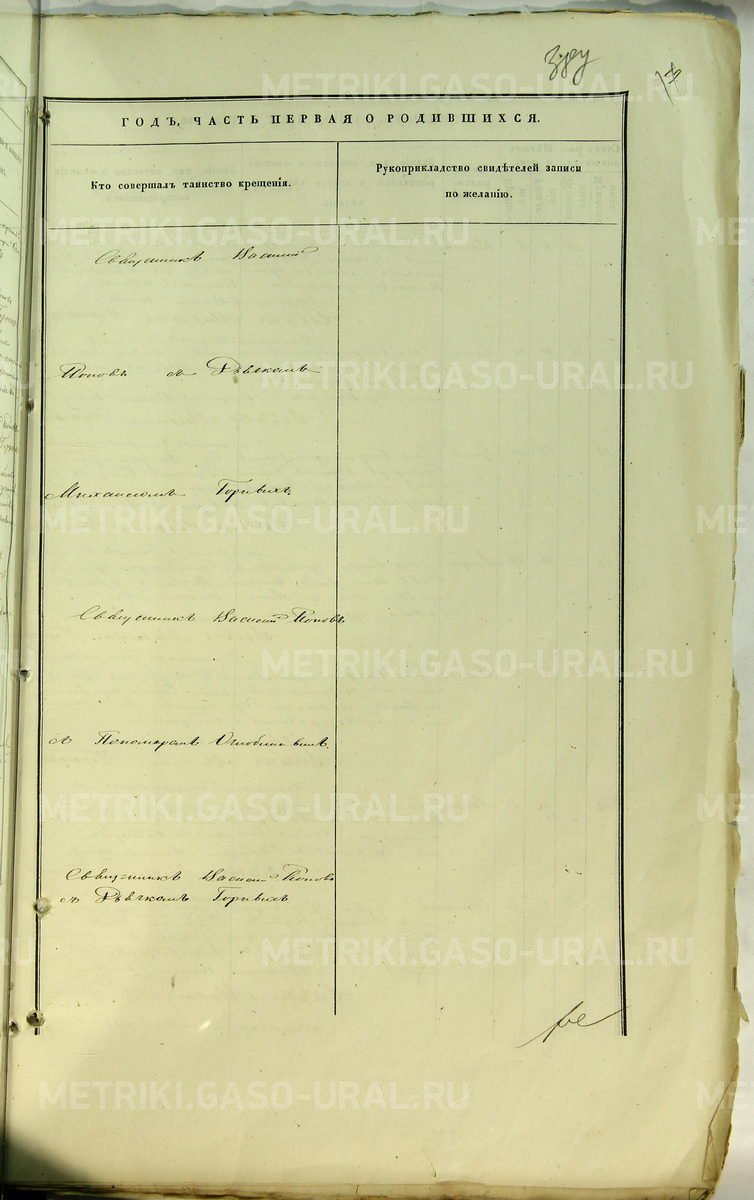 ГОДЪ, ЧАСТЬ ПЕРВАЯ О РОДИВШИХСЯ.
Кто совершалъ таинство крещенія.
Рукоприкладство свидѣтелей записи
по желанію.
Священникъ Василий
Поповъ съ Дьячкомъ
Михаиломъ
Священникъ Василий Поповъ
съ Пономаремъ
Священникъ Василий Поповъ
съ Дьячкомъ
METRIKI.GASO-URAL.RU